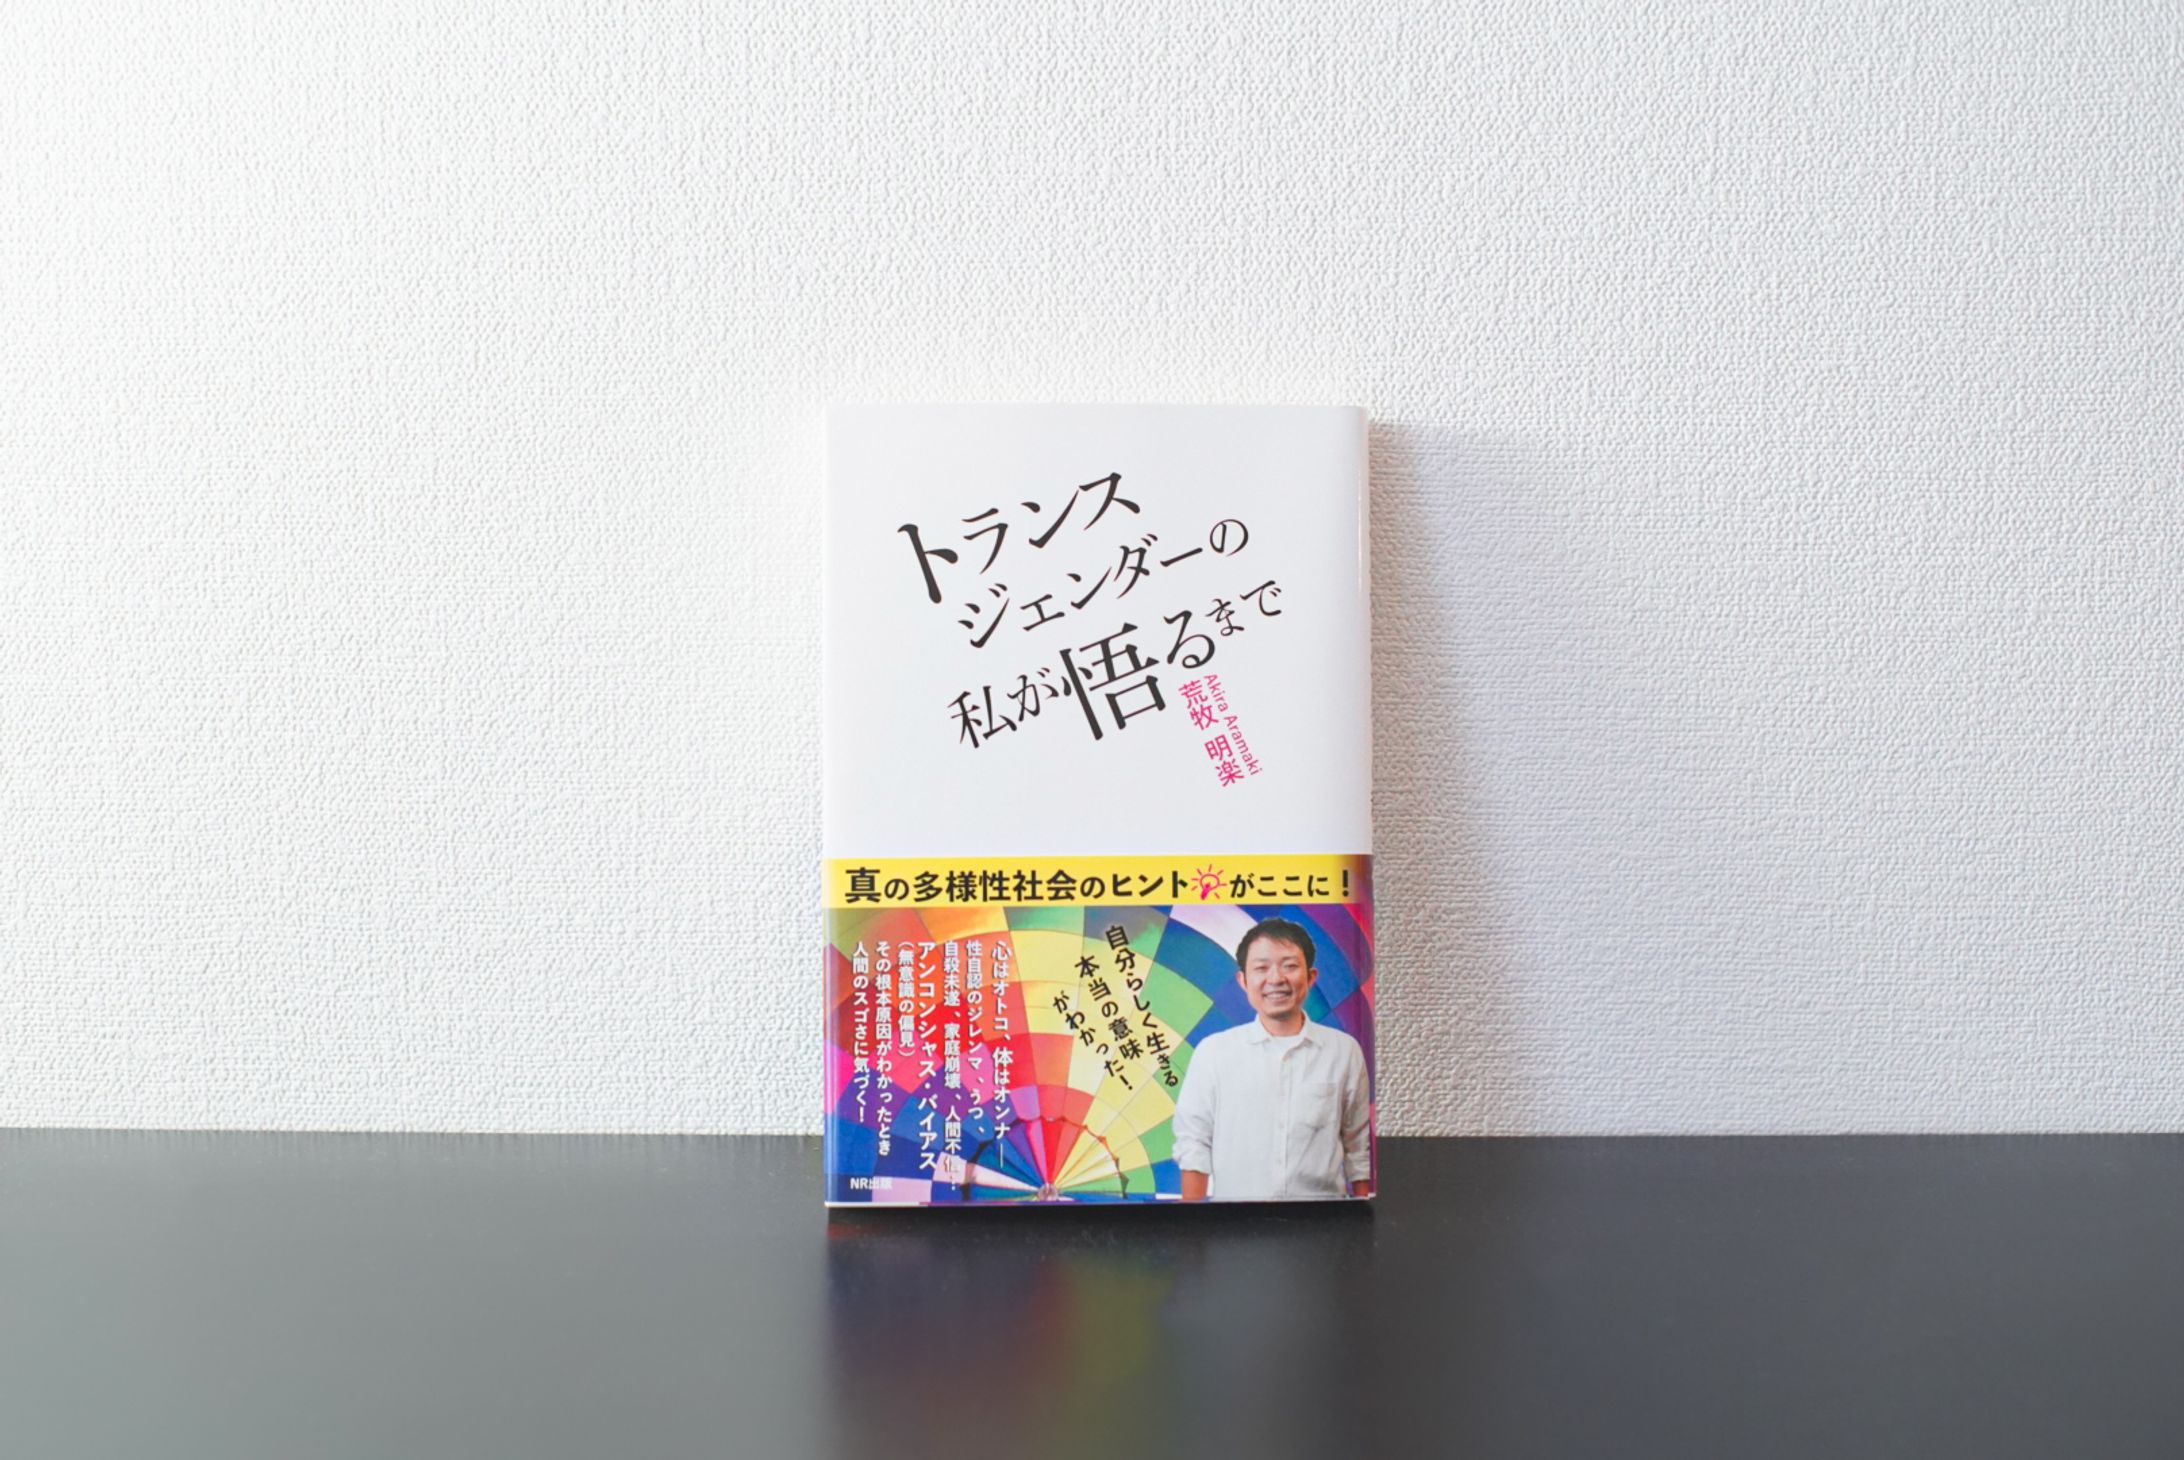 トランス
ジェンダーの
私が悟るまで
Akira Aramaki
荒牧 明楽
真の多様性社会のヒントがここに！
自分らしく生きる
本当の意味
がわかった！
心はオトコ、体はオンナ―
性自認のジレンマ、うつ、
自殺未遂、家庭崩壊、人間不信…
アンコンシャス・バイアス
（無意識の偏見）
その根本原因がわかったとき
人間のスゴさに気づく！
NR出版